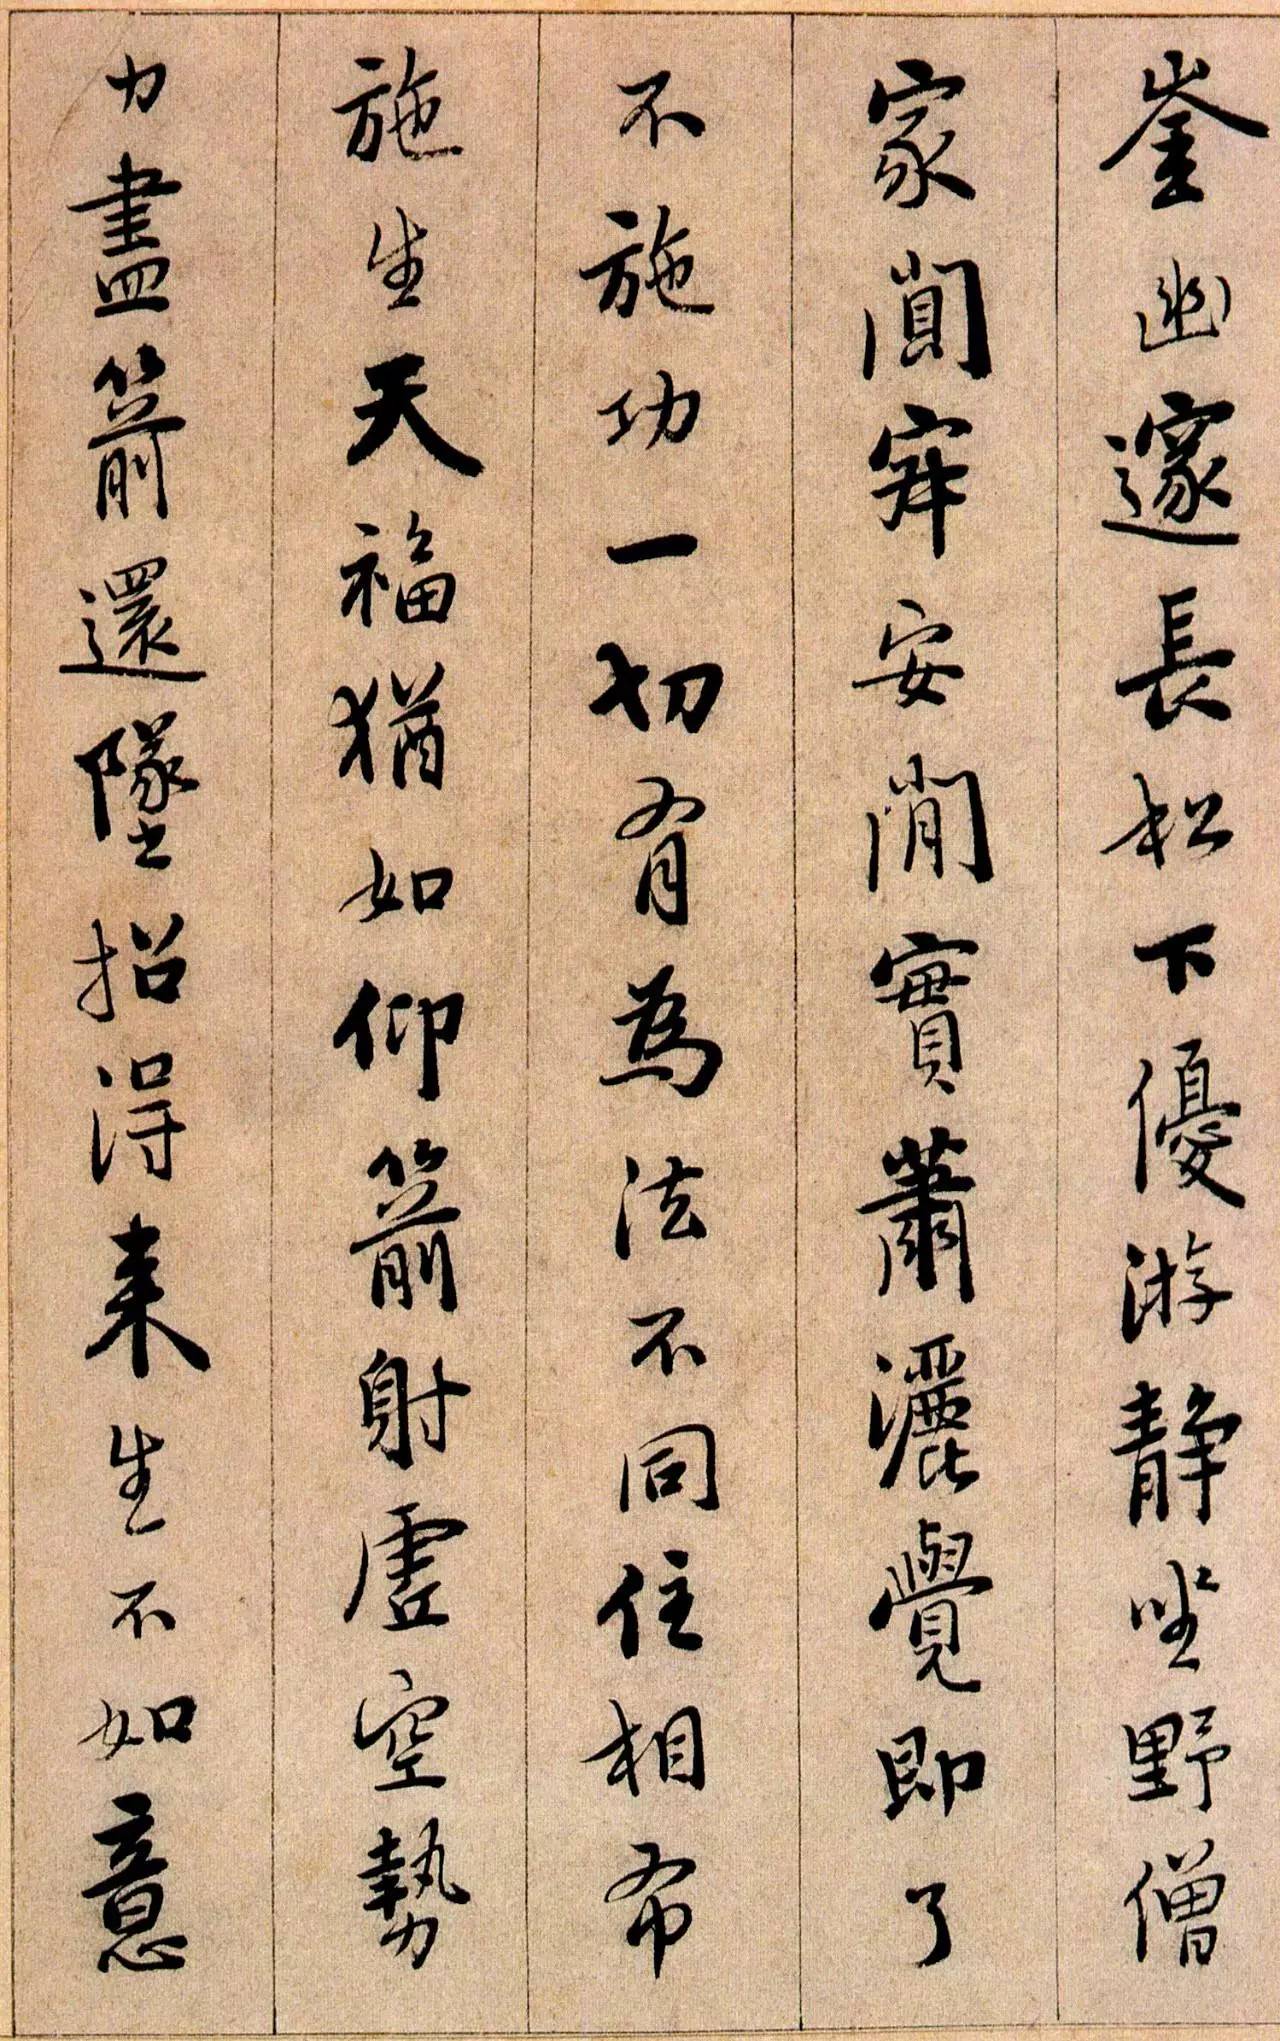 崟幽邃長松下優游靜坐野僧
家闃寂安閒實蕭灑覺即了
不施功一切有為法不同住相布
施生天福猶如仰箭射虛空勢
力盡箭還墜招得來生不如意